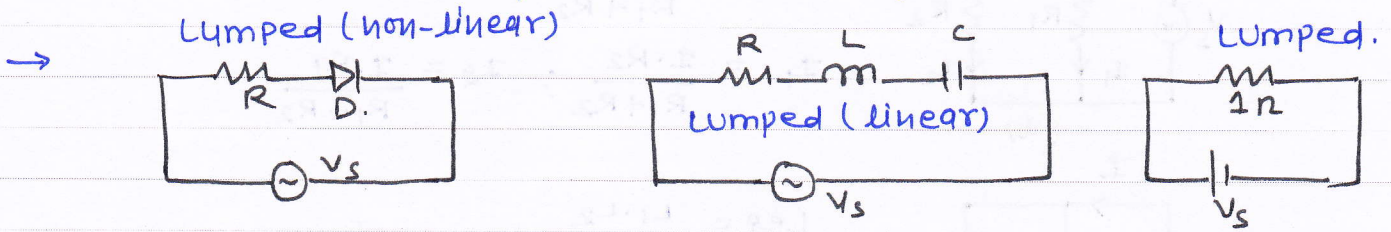 → Lumped (non-linear)
R
D.
Vs
R L C
Lumped (linear)
Vs
Lumped.
1Ω
Vs